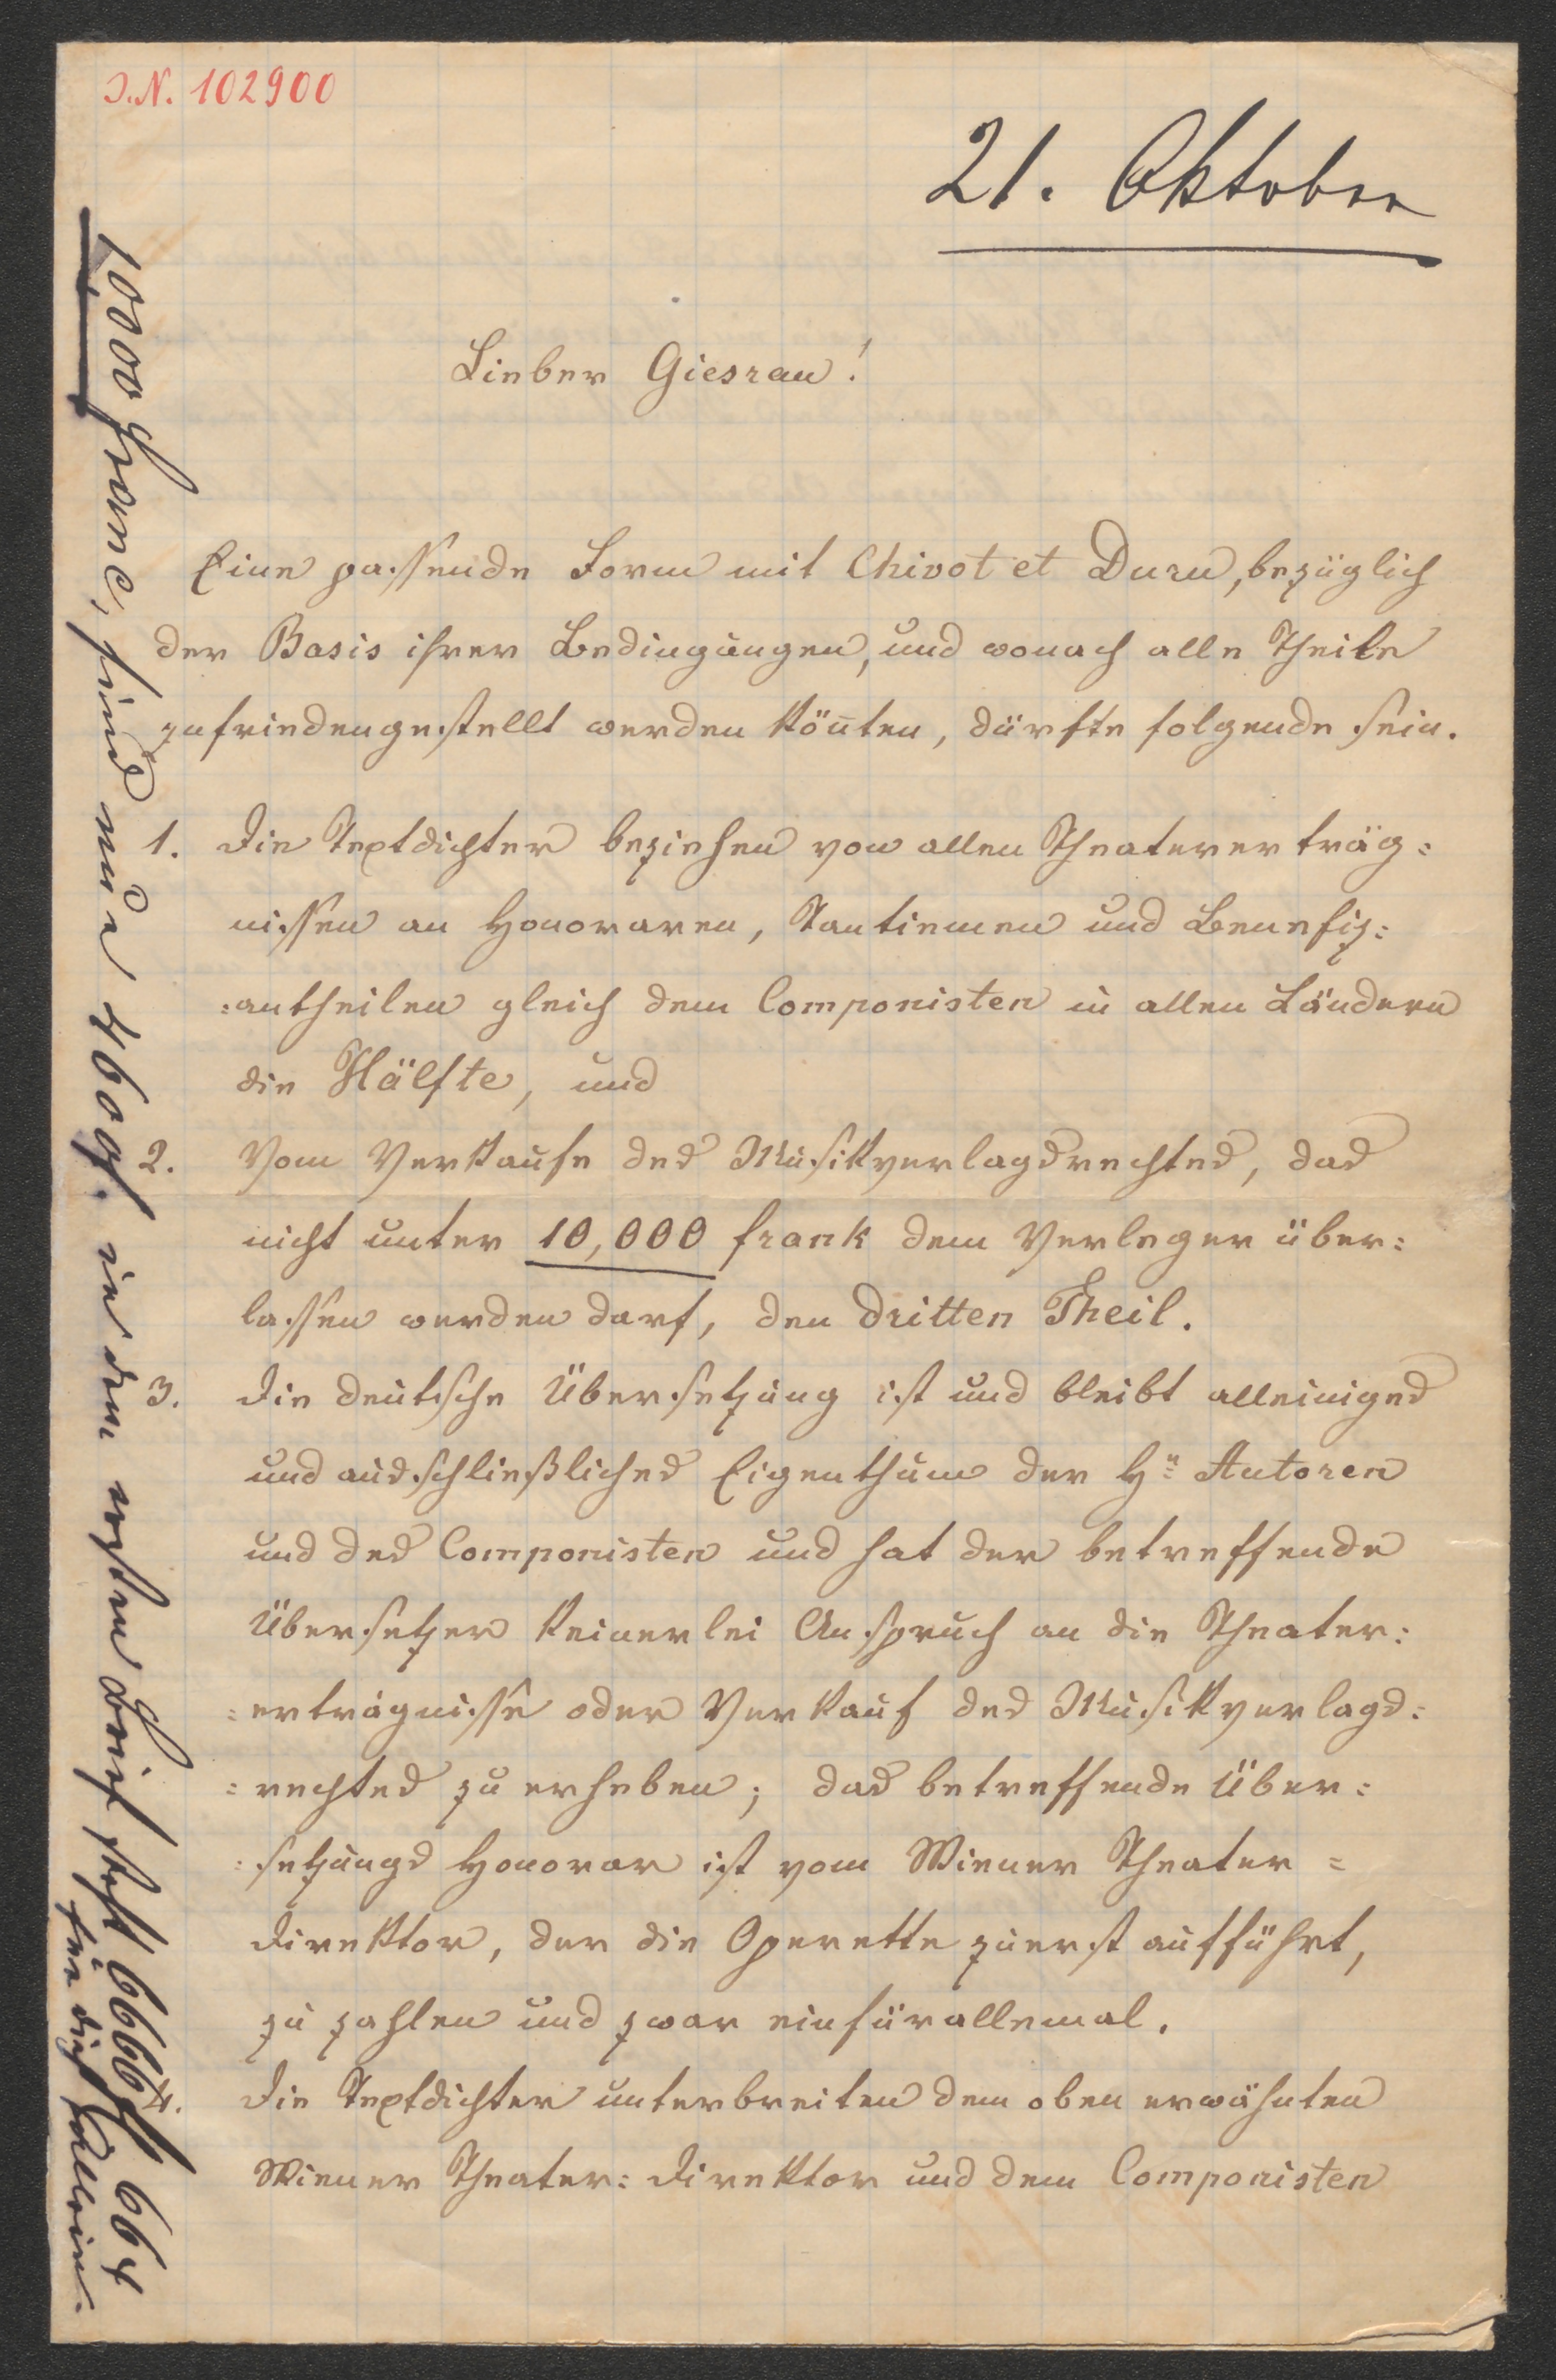 I.N. 102900
21. Oktober
Lieber Giesrau!
Eine passende Form mit Chivot et Duru, bezüglich
der Basis ihrer Bedingungen, und wonach alle Theile
zufriedengestellt werden kön̄ten, dürfte folgende sein.
1. Die Textdichter beziehen von allen Theatererträg=
nissen an Honoraren, Tantiemen und Benefiz=
=antheilen gleich dem Componisten in allen Ländern
die Hälfte, und
2. Vom Verkaufe des Musikverlagsrechtes, das
nicht unter 10,000 frank dem Verleger über=
lassen werden darf, den dritten Theil.
3. Die deutsche Übersetzung ist und bleibt alleiniges
und ausschließliches Eigenthum der H. Autoren
und des Componisten und hat der betreffende
Übersetzer keinerlei Anspruch an die Theater=
=erträgnisse oder Verkauf des Musikverlags=
=rechtes zu erheben; das betreffende Über=
=setzungs Honorar ist vom Wiener Theater=
Direktor, der die Operette zuerst aufführt,
zu zahlen und zwar einfürallemal.
4. Die Textdichter unterbreiten dem oben erwähnten
Wiener Theater= Direktor und dem Componisten
1000 Franc, sind nur 460 f. in dem ersten Brief steht 6666 f 66 x
für dich allein.